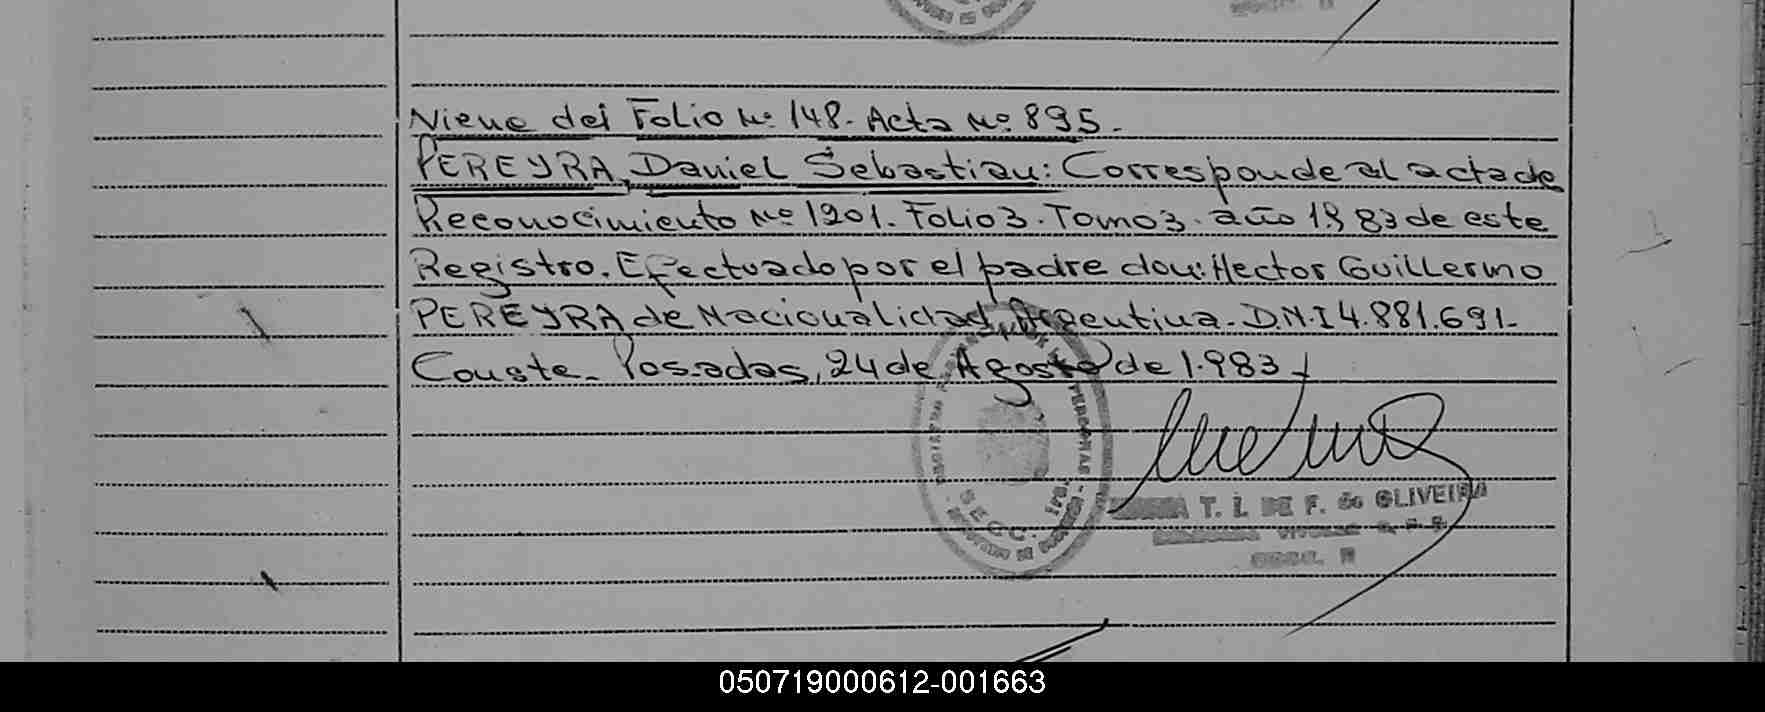 Viene del Folio Nº 148. Acta Nº 895.
PEREYRA, Daniel Sebastian: Corresponde al acta de
Reconocimiento Nº 1201. Folio 3. Tomo 3. año 1983 de este
Registro. Efectuado por el padre don: Hector Guillermo
PEREYRA de Nacionalidad Argentina. D.N.I 4.881.691-
Conste. Posadas, 24 de Agosto de 1.983
PERSONAS
SECC. 1ra.
T. I. DE F. de OLIVEIRA
050719000612-001663